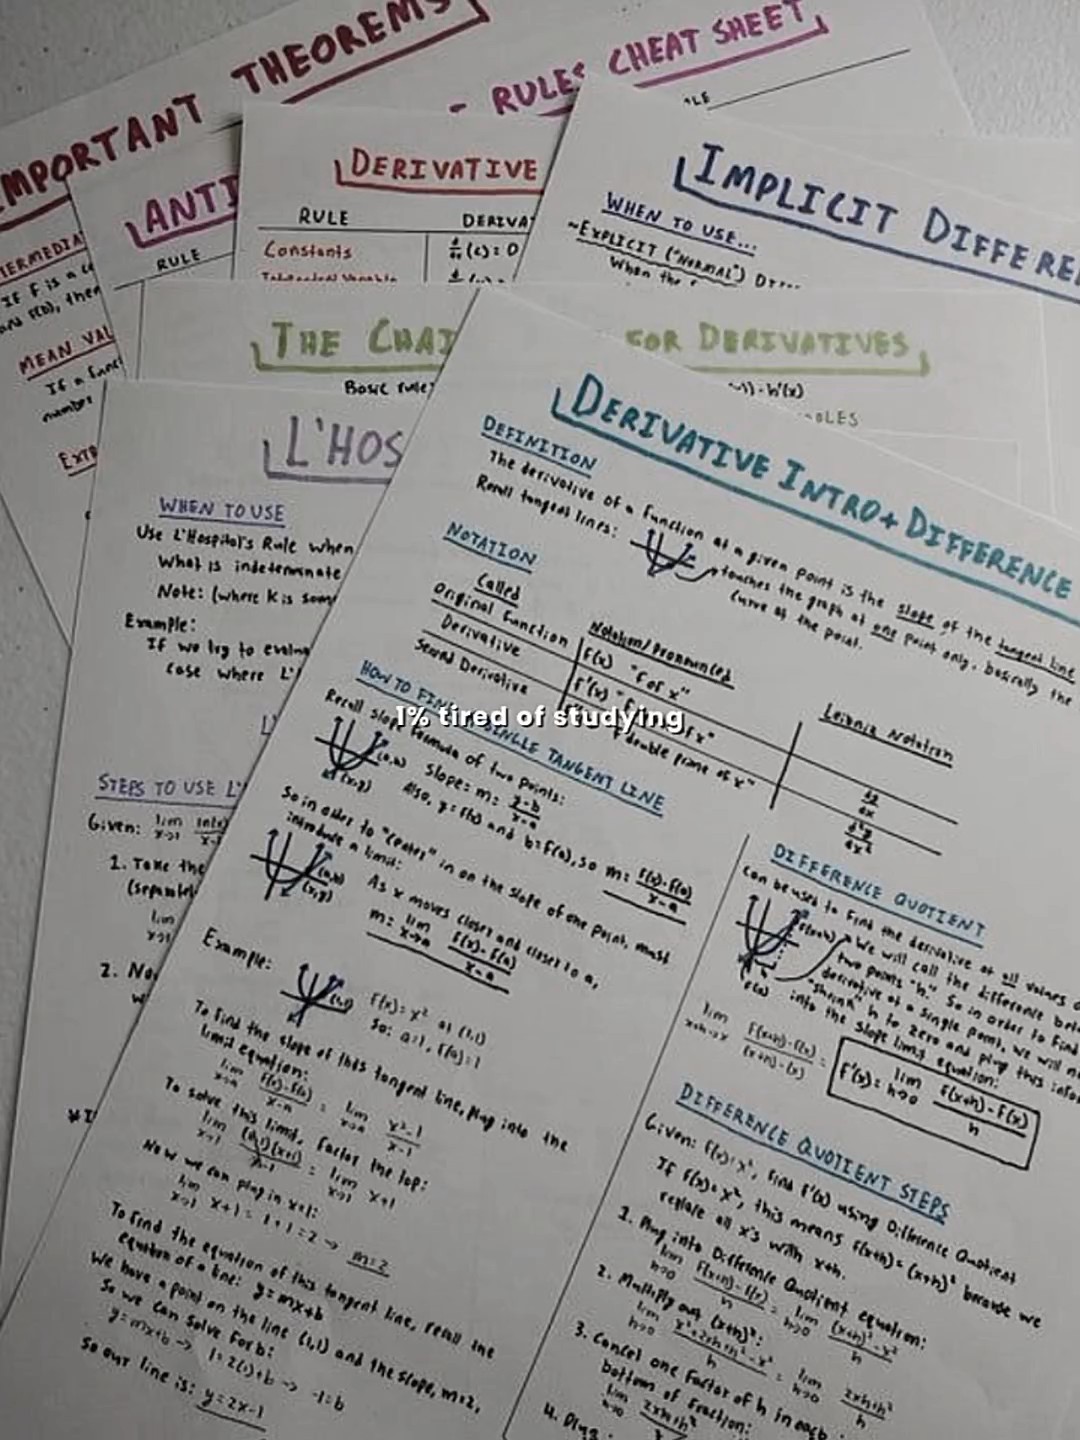 IMPORTANT THEOREMS
- RULES CHEAT SHEET
ANTI
RULE
DERIVATIVE
RULE
Constants
d/dx (c) = 0
IMPLICIT DIFFERE
WHEN TO USE...
~EXPLICIT ("NORMAL")
When the
MEAN VAL
If a func
number
THE CHAI
FOR DERIVATIVES
Basic rule:
L'HOS
WHEN TO USE
Use L'Hospital's Rule when
What is indeterminate
Note: (where K is som
Example:
If we try to evalua
case where L'
STEPS TO USE L'
Given: lim x→1
1. Take the
lim x→1
2. No
DERIVATIVE INTRO + DIFFERENCE
DEFINITION
The derivative of a function at a given point is the slope of the tangent line
Recall tangent lines:
touches the graph at one point only, basically the
curve at the point.
NOTATION
Called
Notation/Pronounced
Leibniz Notation
Original Function
f(x) "f of x"
Derivative
dy/dx
Second Derivative
d²y/dx²
1% tired of studying
HOW TO FIND SINGLE TANGENT LINE
Recall slope formula of two points:
(a,b)
(x,y)
Slope = m = y-b/x-a
Also, y = f(x) and b = f(a), so m = f(x)-f(a)/x-a
So in order to "center" in on the slope of one point, must
introduce a limit:
(a,b)
(x,y)
As x moves closer and closer to a,
m = lim x→a f(x)-f(a)/x-a
Example:
(1,1)
f(x) = x² at (1,1)
So: a=1, f(a)=1
To find the slope of this tangent line, plug into the
limit equation:
lim x→a f(x)-f(a)/x-a = lim x→a x²-1/x-1
To solve this limit, factor the top:
lim x→1 (x-1)(x+1)/x-1 = lim x→1 x+1
Now we can plug in x=1:
lim x→1 x+1 = 1+1 = 2 → m=2
To find the equation of this tangent line, recall the
equation of a line: y=mx+b
We have a point on the line (1,1) and the slope, m=2,
So we can solve for b:
y=mx+b → 1=2(1)+b → -1=b
So our line is: y=2x-1
DIFFERENCE QUOTIENT
Can be used to find the derivative at all values
f(x+h)
f(x)
We will call the difference
two points "h". So in order to find
derivative at a single point, we will
"shrink" h to zero and plug this
into the slope limit equation:
lim x+h→x f(x+h)-f(x)/(x+h)-(x) =
f'(x) = lim h→0 f(x+h)-f(x)/h
DIFFERENCE QUOTIENT STEPS
Given: f(x)=x², find f'(x) using Difference Quotient
If f(x)=x², this means f(x+h)=(x+h)² because we
replace all x's with x+h.
1. Plug into Difference Quotient equation:
lim h→0 f(x+h)-f(x)/h = lim h→0 (x+h)²-x²/h
2. Multiply out (x+h)²:
lim h→0 x²+2xh+h²-x²/h = lim h→0 2xh+h²/h
3. Cancel one factor of h in each
bottom of fraction:
lim h→0 2xh+h²
4. Plug